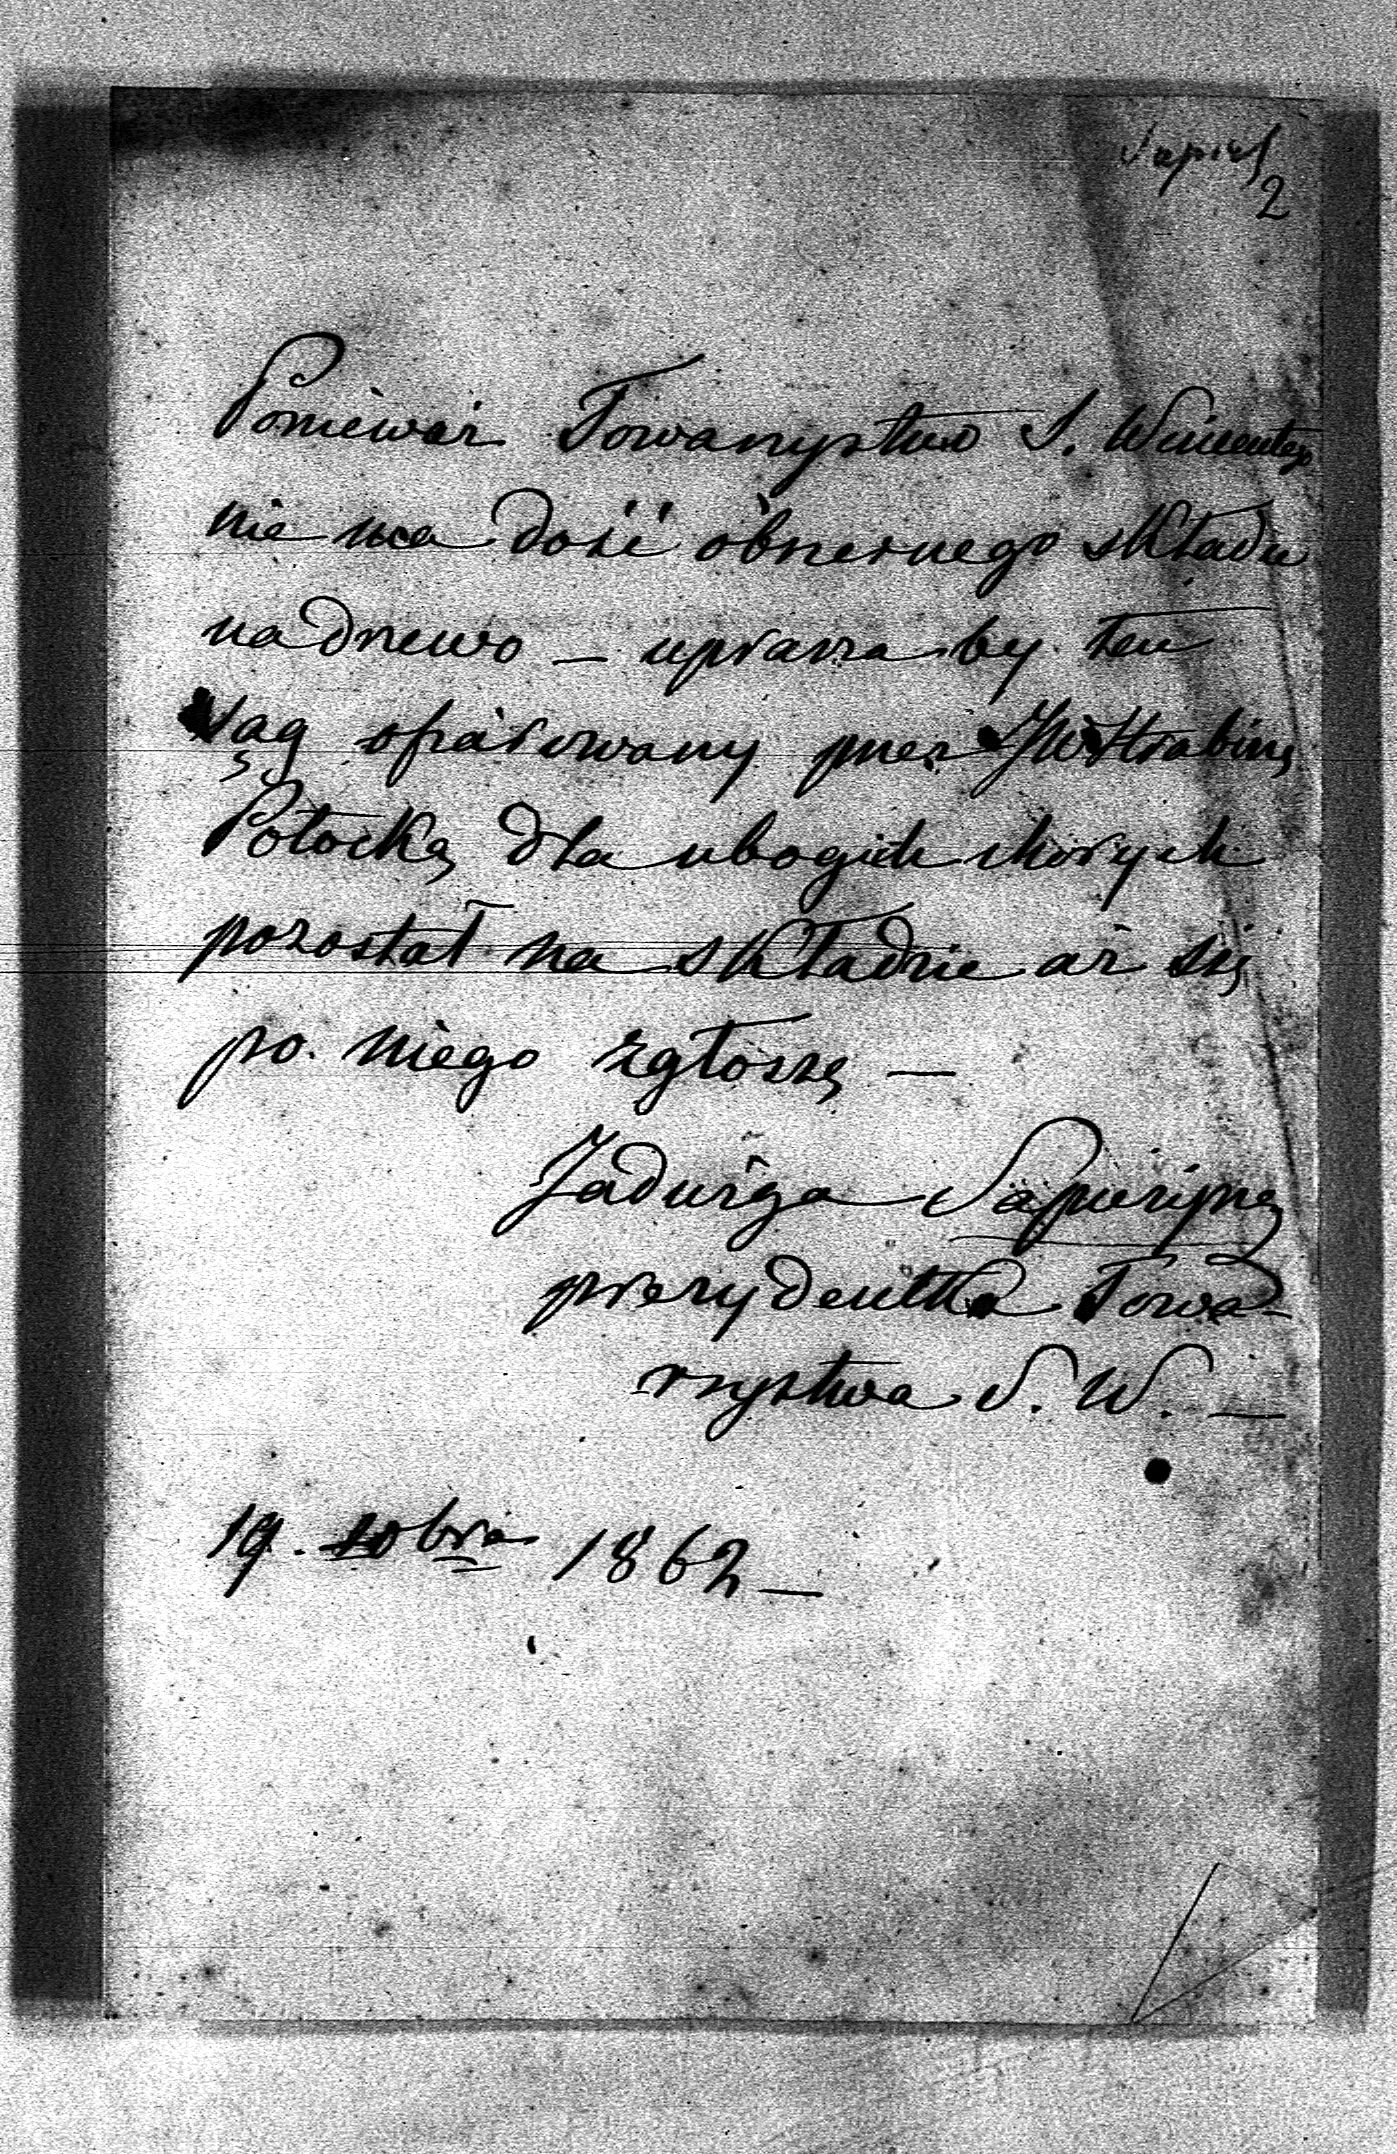 Sapieh
2
Ponieważ Towarzystwo S. Wincentego
nie ma dość obszernego składu
na drzewo — uprasza by ten
sąg ofiarowany przez JW Hrabinę
Potocką dla ubogich chorych
pozostał na składzie aż się
po niego zgłoszę —
Jadwiga Sapieżyna
prezydentka Towa-
rzystwa S. W. —
19. 10bra 1862 —